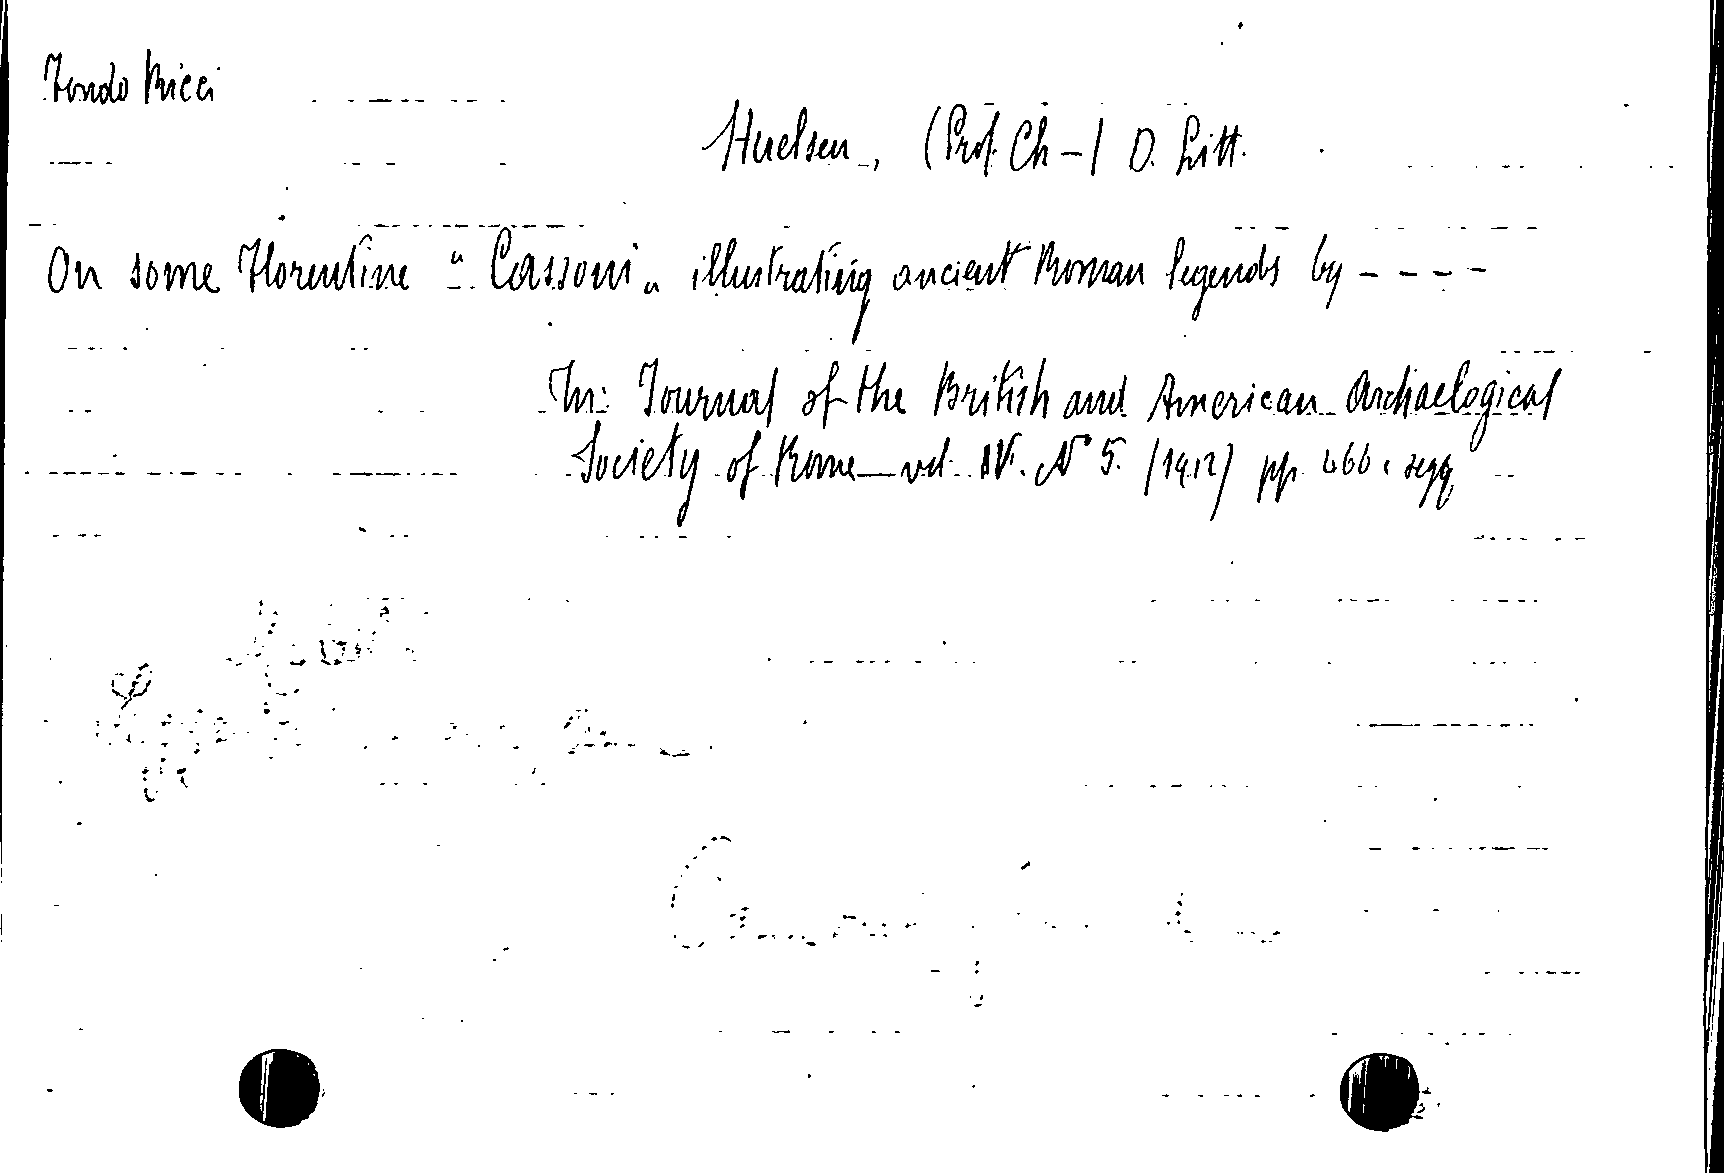 Fondo Ricci
Huelsen, (Prof. Ch-) D. Litt.
On some Florentine "Cassoni" illustrating ancient Roman legends by - - - -
In: Journal of the British and American Archaelogical
Society of Rome vol. IV. N° 5. (1912) pp. 466 e segg